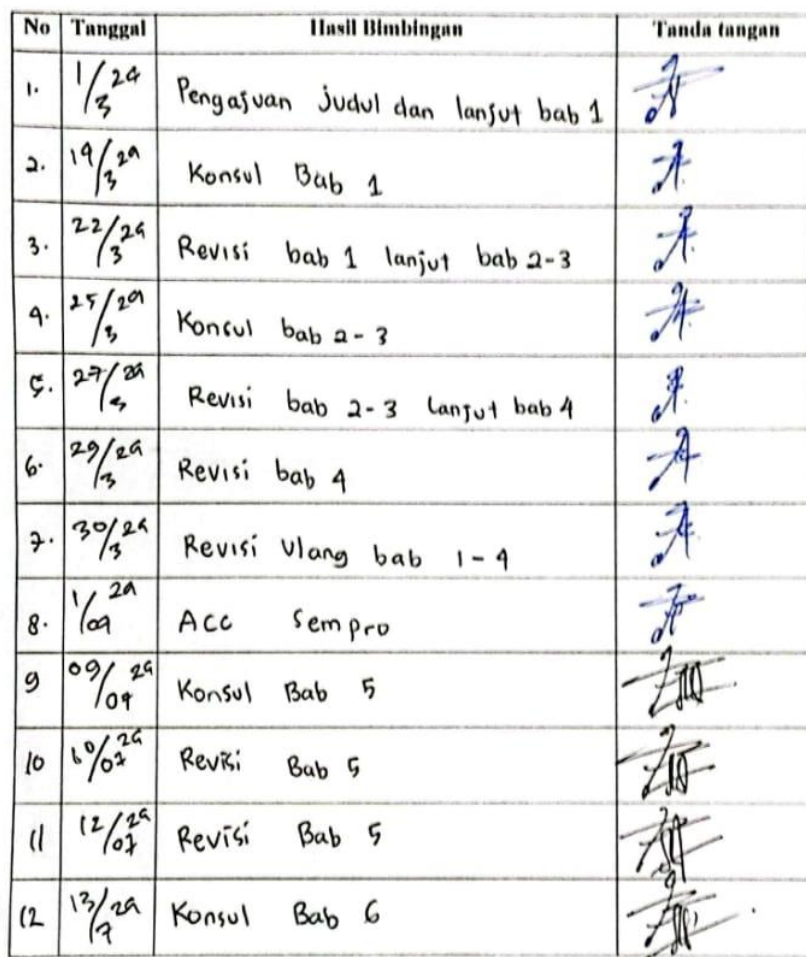 No Tanggal Hasil Bimbingan Tanda tangan
1. 1/3 24 Pengajuan judul dan lanjut bab 1
2. 19/3 24 Konsul Bab 1
3. 22/3 24 Revisi bab 1 lanjut bab 2-3
4. 25/3 24 Konsul bab 2-3
5. 27/3 24 Revisi bab 2-3 lanjut bab 4
6. 29/3 24 Revisi bab 4
7. 30/3 24 Revisi Ulang bab 1-4
8. 1/04 24 Acc Sempro
9 09/ 24 Konsul Bab 5
10 10/07 24 Revisi Bab 5
11 12/07 24 Revisi Bab 5
12 13/7 24 Konsul Bab 6